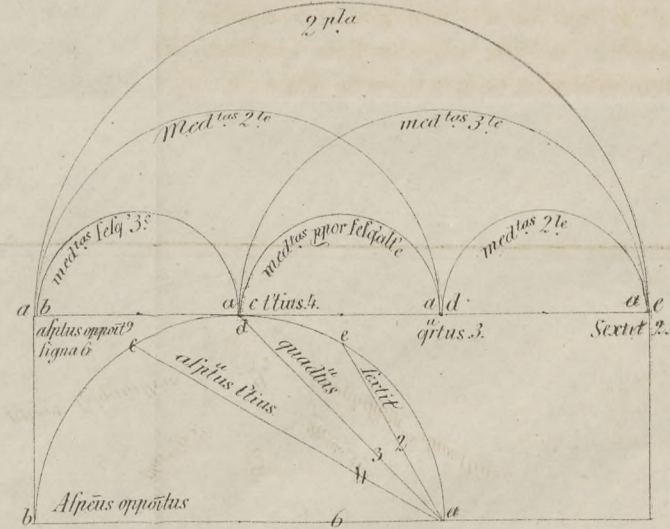 2 pla
Medtas 2le
medtas 3le
medtas selq' 3e
medtas ppor selqalt'e
medtas 2le
a b
a c t'tius. 4.
a d
a e
asp̄tus oppoit9
signa 6
d
q̈rtus 3.
Sextit 2.
c
e
asp̈tus t'tius
quad̈tus
sextit
4
3
2
b
Aspēus oppōitus
6
a